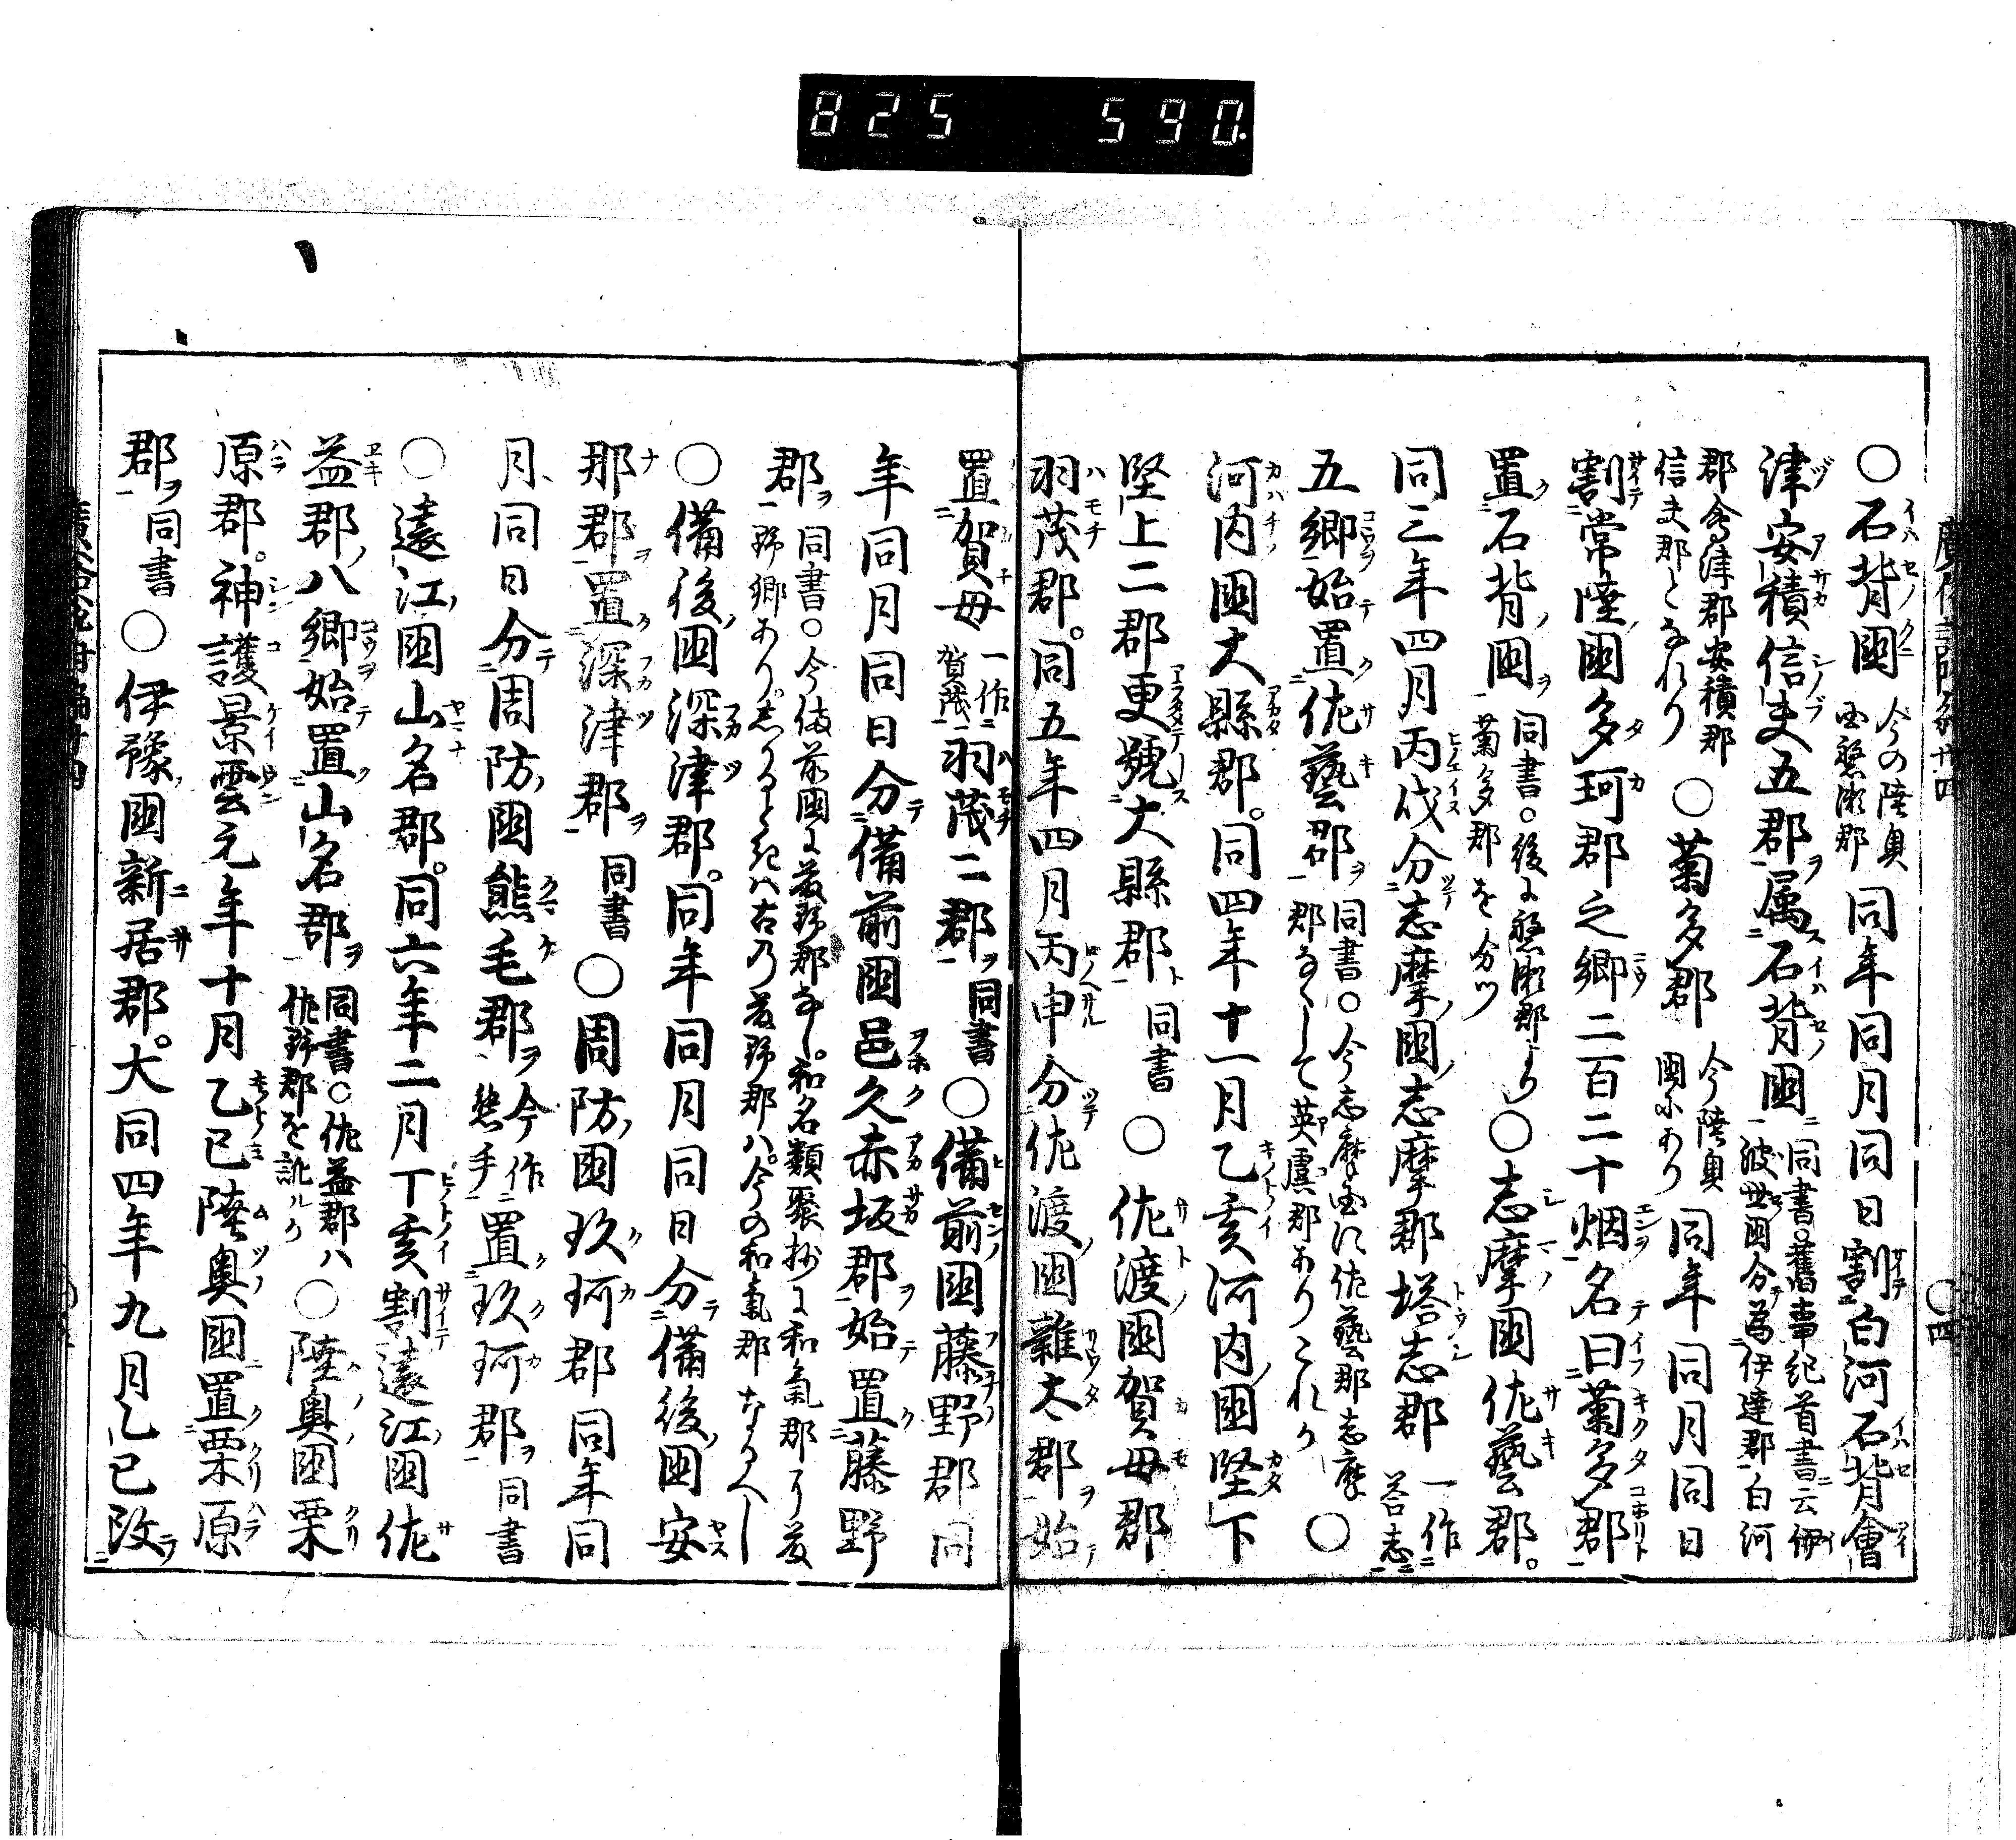 825 590.
○石背國 今の陸奥国磐瀬郡 同年同月同日割白河石背會
津安積信夫五郡属石背國 同書○舊事紀首書云伊波世國分為伊達郡白河
郡會津郡安積郡信夫郡となれり ○菊多郡 今陸奥國にあり 同年同月同日
割常陸國多珂郡之郷二百二十烟名曰菊多郡
置石背國 同書○後に磐瀬郡より菊多郡を分ツ ○志摩國佐藝郡。
同三年四月丙戌分志摩國志摩郡塔志郡 一作荅志
五郷始置佐藝郡 同書○今志摩国に佐藝郡志摩郡なくして英虞郡ありこれか ○
河内國大縣郡。同四年十一月乙亥河内國堅下
堅上二郡更號大縣郡 同書 ○佐渡國賀母郡
羽茂郡。同五年四月丙申分佐渡國雜太郡始
置賀母 一作賀茂 羽茂二郡 同書 ○備前國藤野郡同
年同月同日分備前國邑久赤坂郡始置藤野
郡 同書○今備前國に藤野郡なし。和名類聚抄に和氣郡に藤野郷あり。しかるときハ古乃藤野郡ハ。今の和氣郡なるへし
○備後國深津郡。同年同月同日分備後國安
那郡置深津郡 同書 ○周防國玖珂郡同年同
月同日分周防國熊毛郡 今作熊手 置玖珂郡 同書
○遠江國山名郡。同六年二月丁亥割遠江國佐
益郡八郷始置山名郡 同書○佐益郡ハ佐野郡を訛ルか ○陸奥國栗
原郡。神護景雲元年十月乙巳陸奥國置栗原
郡 同書 ○伊豫國新居郡。大同四年九月乙巳改